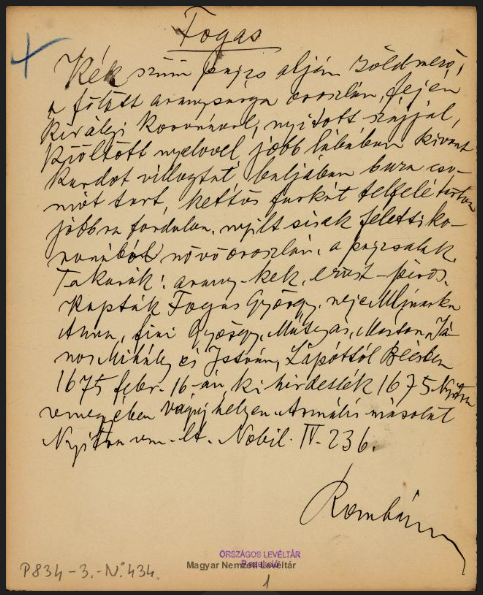 Fogas
Kék színű pajzs alján zöld mező,
a fölött aranysárga oroszlán, fején
királyi koronával, nyitott szájjal,
kiöltött nyelvvel, jobb lábában kivont
kardot villogtat, baljában buza cso-
mót tart, kettős farkát felfelé tartva
jobbra fordulva, nyílt sisak feletti ko-
ronából növő oroszlán, a pajzsalak.
Takarók: arany-kék, ezüst-piros.
Kapták Fogas György, neje Mlinarka
Anna, fiai György, Mátyás, Márton, Já-
nos Mihály és István, Lipóttól Bécsben
1675 febr. 16-án, kihirdették 1675 Nyitra
vmegyében Vágújhelyen Armális másolat
Nyitra vm. lt. Nobil. IV-236.
ORSZÁGOS LEVÉLTÁR
Magyar Nemzeti Levéltár
P834-3.-No. 434.
1